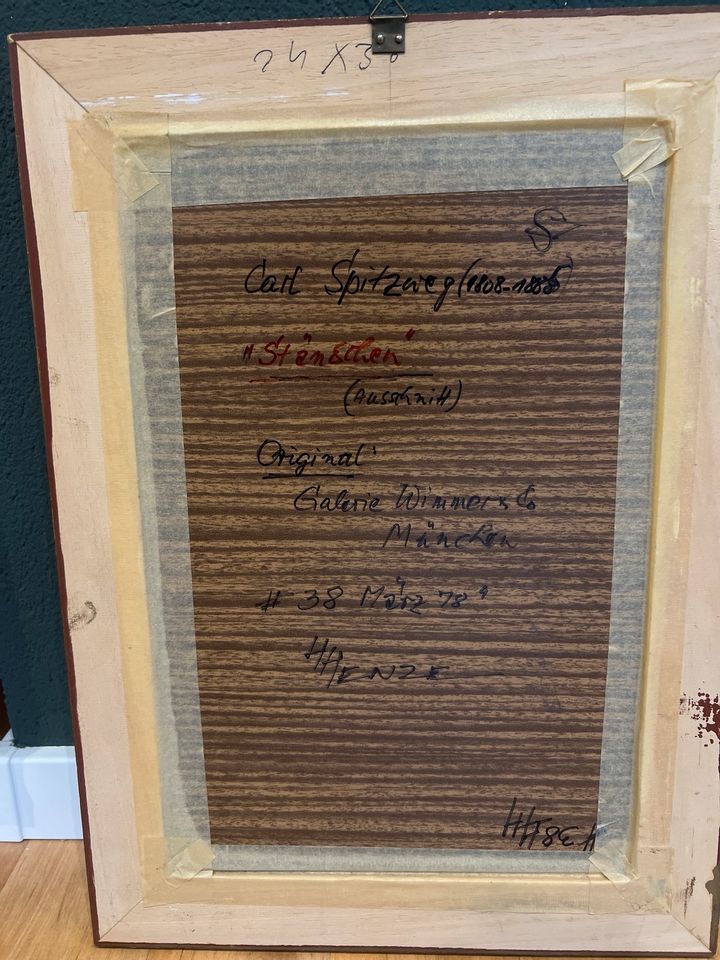 24 X 30
Carl Spitzweg (1808-1885)
"Ständchen"
(Ausschnitt)
Original'
Galerie Wimmer & Co
München
# 38 März 78"
HHENZE